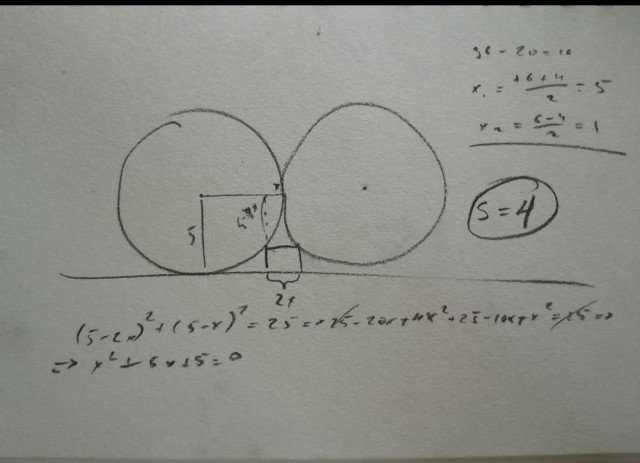 36 - 20 = 16
x₁ = +6+4/2 = 5
x₂ = 6-4/2 = 1
S = 4
5
x
2x
(5-2x)² + (5-x)² = 25 = 25 - 20x + 4x² + 25 - 10x + x² = 25 =>
=> x² - 6x + 5 = 0